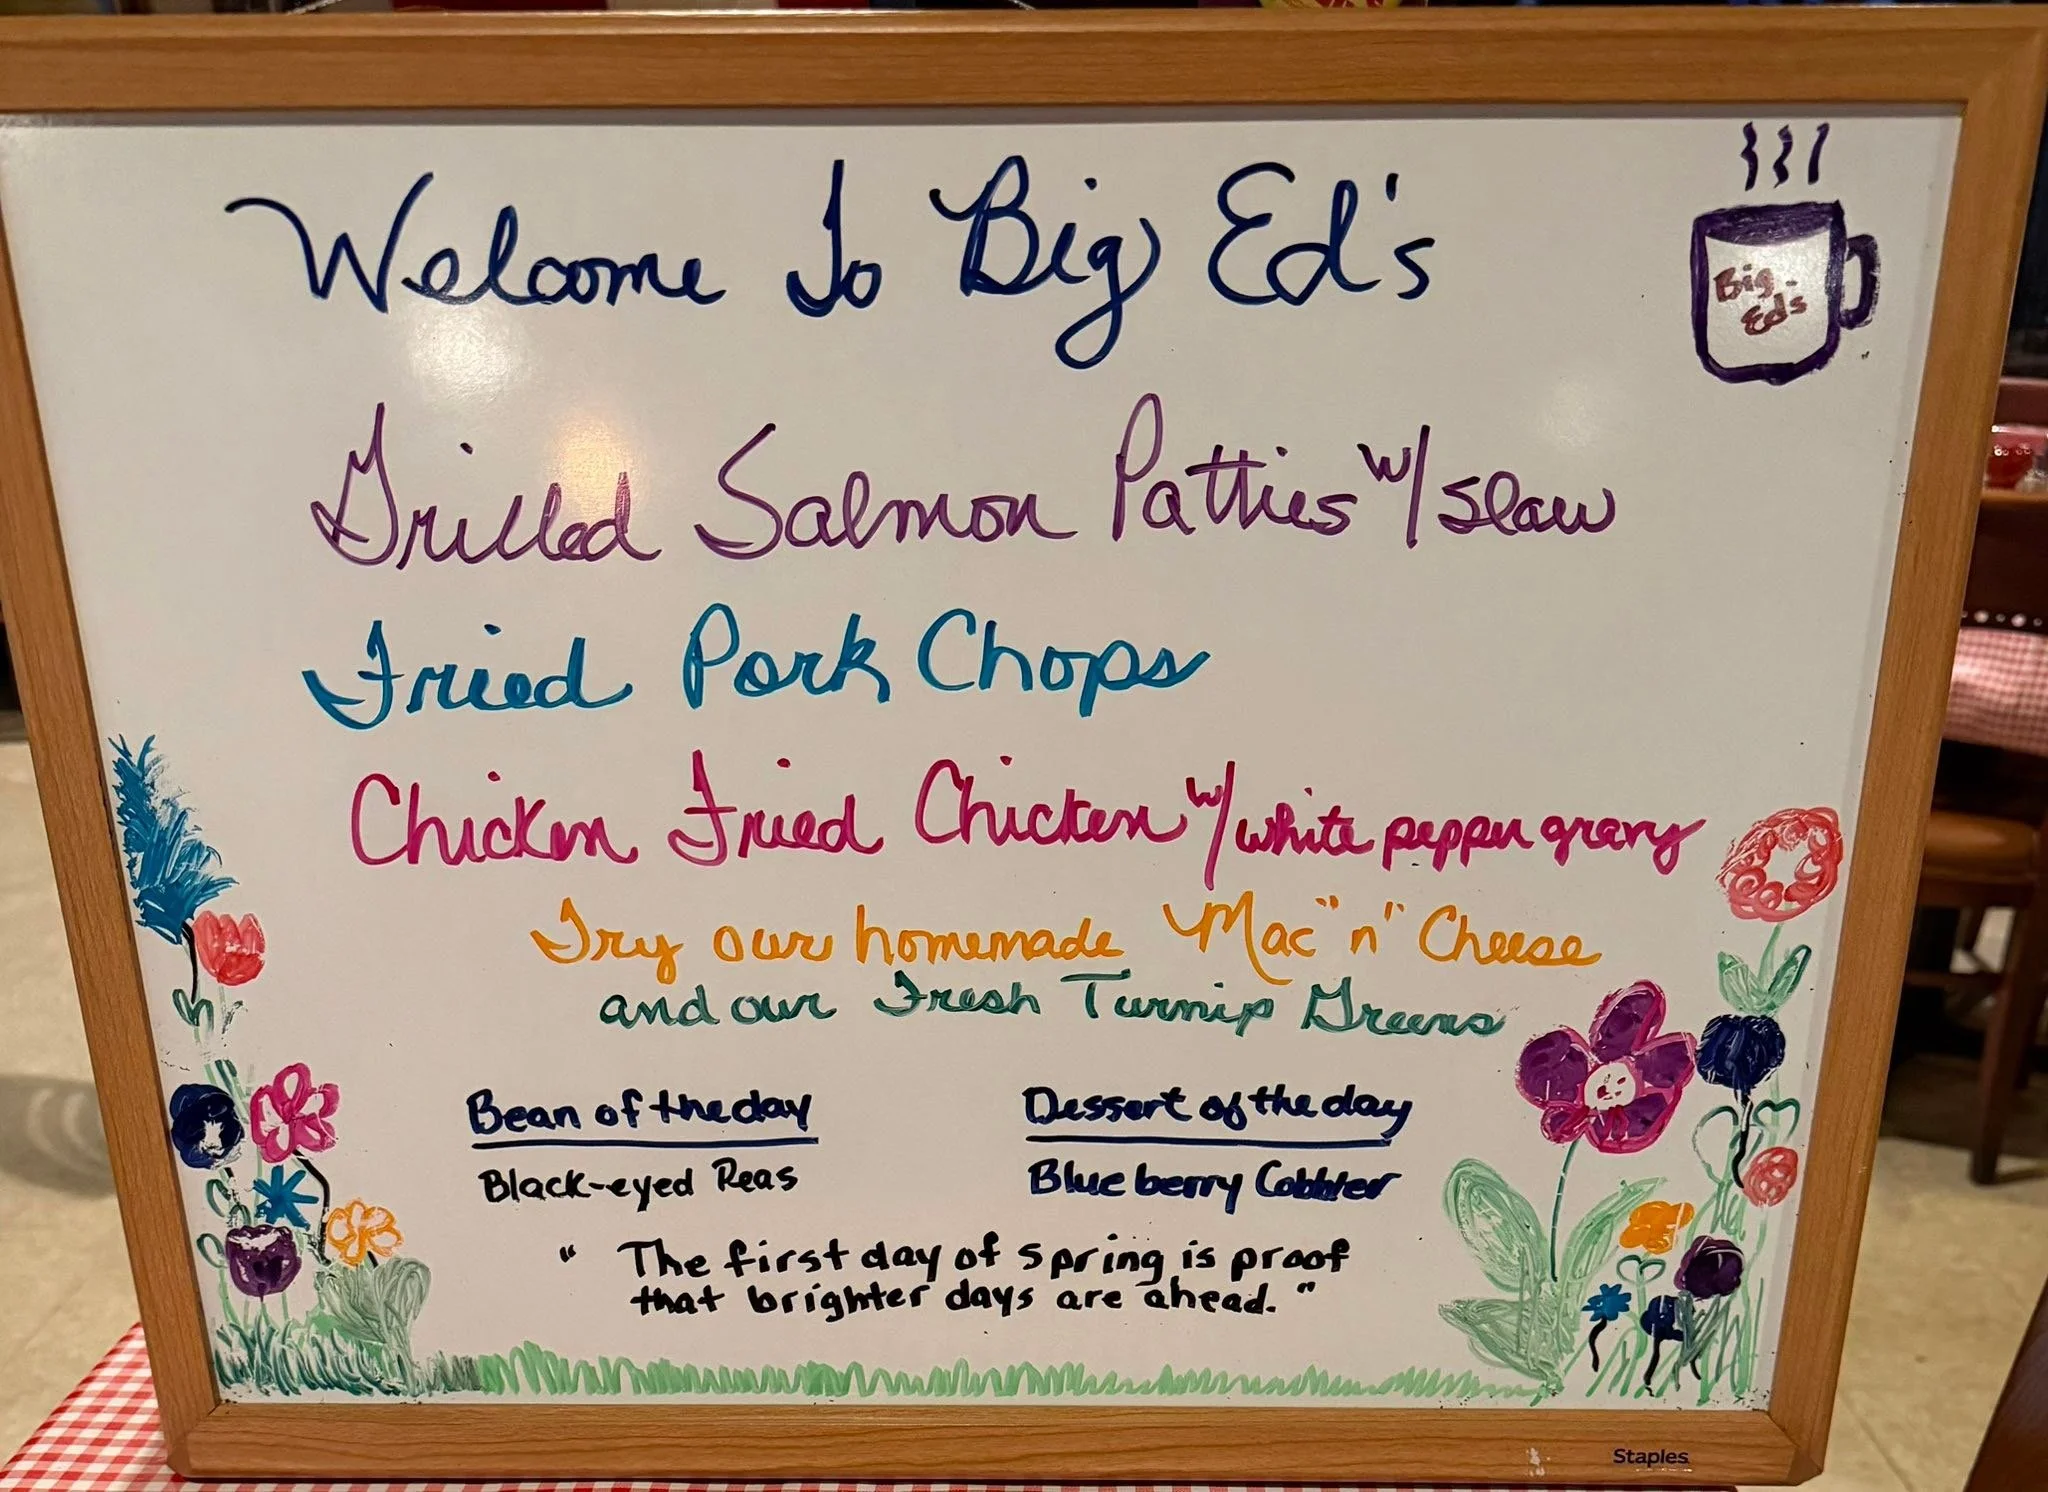 Welcome To Big Ed's
Big
Ed's
Grilled Salmon Patties w/slaw
Fried Pork Chops
Chicken Fried Chicken w/white pepper gravy
Try our homemade Mac "n" Cheese
and our Fresh Turnip Greens
Bean of the day
Black-eyed Peas
Dessert of the day
Blueberry Cobbler
" The first day of spring is proof
that brighter days are ahead. "
Staples